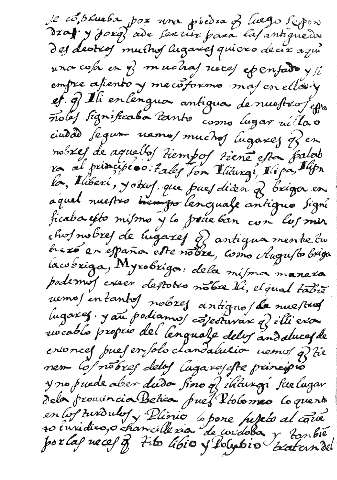 se cõprueba por una piedra q̃ luego se pon
dra: y porq̃ a de servir para las antigueda
des de otros muchos lugares quiero decir aquí
una cosa en q̃ muchas veces e pensado y si
empre asiento y me cõformo mas en ella: y
es q̃ Ili en lengua antigua de nuestros espa
ñoles significaba tanto como lugar villa o
ciudad segun vemos muchos lugares q̃ en
nõbres de aquellos tiempos tienẽ esta palab
ra al principio: tales son Iliturgi, Ilipa, Ilipu
la, Iliberi, y otros. que pues dicen q̃ briga en
aquel nuestro lenguaje antiguo signi
ficaba esto mismo y lo prueban con los mu
chos nõbres de lugares q̃ antiguamente tu
bierõ en españa este nõbre, como Augustobriga
iacobriga, Myrobriga: de la misma manera
podemos creer destotro nõbre Ili, el qual tãbiẽ
vemos en tantos nõbres antiguos de nuestros
lugares. y aũ podiamos cõjecturar q̃ ili era
vocablo proprio del lenguaje de los andaluces de
entonces pues en solo el andalucia vemos q̃ tie
nen los nõbres de los lugares este principio
y no puede aber duda sino q̃ iliturgi fue lugar
de la provincia Betica pues Ptolomeo lo quenta
en los turdulos y Plinio lo pone sujeto al cõvẽ
to iuridico, o chancilleria de cordoba y tambiẽ
por las veces q̃ Tito libio y Polybio tratan del